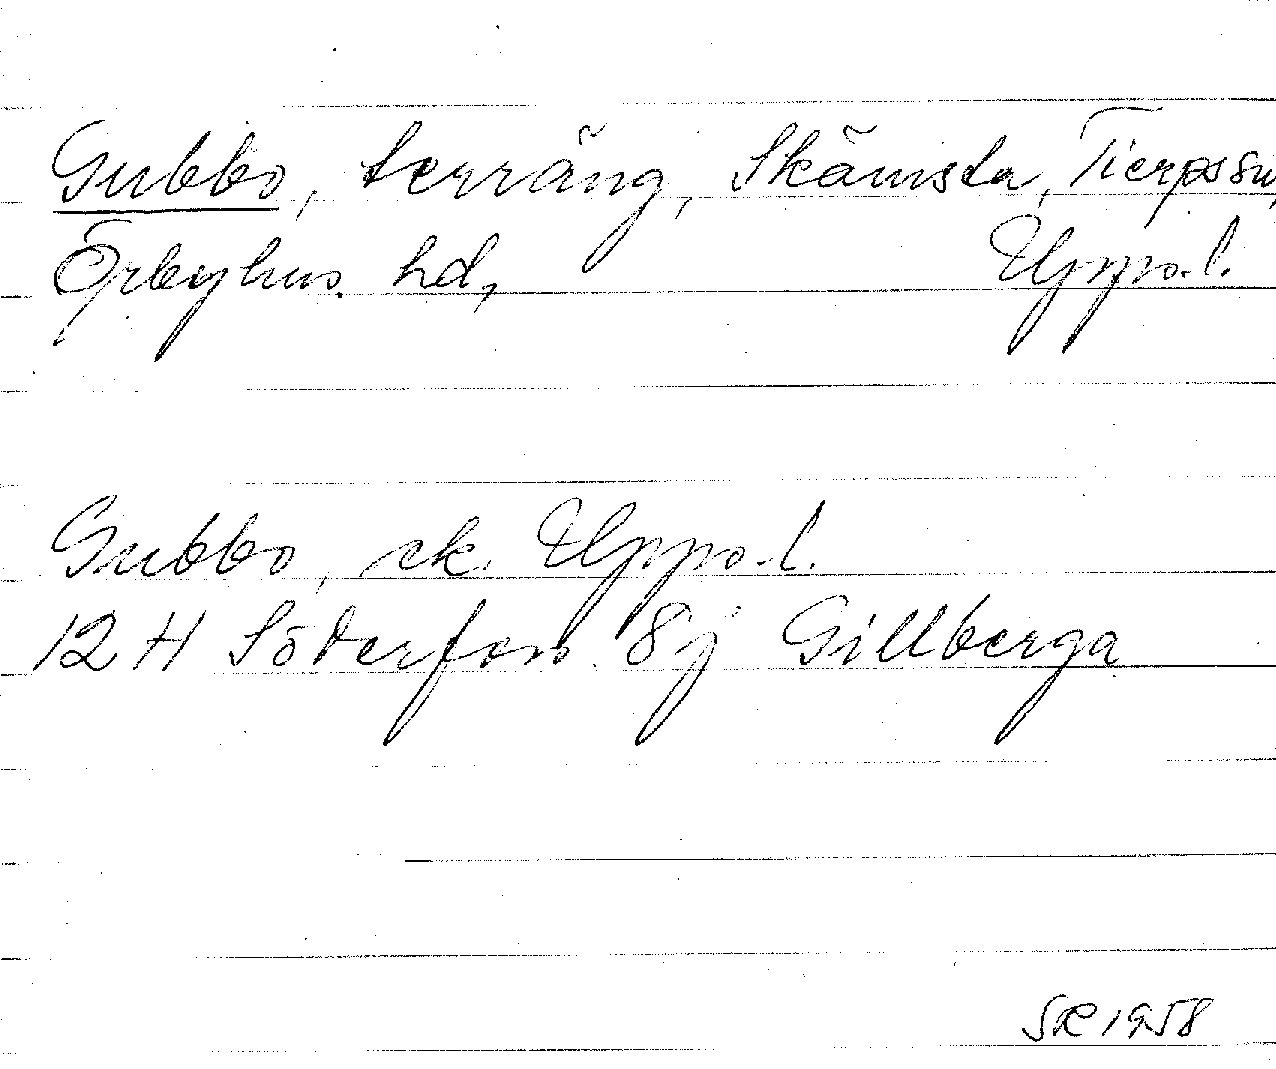 Gubbo, terräng, Skämsta, Tierps sn,
Örbyhus hd, Upps.l.
Gubbo, ek. Upps.l.
12 H Söderfors 8j Gillberga
SR 1958